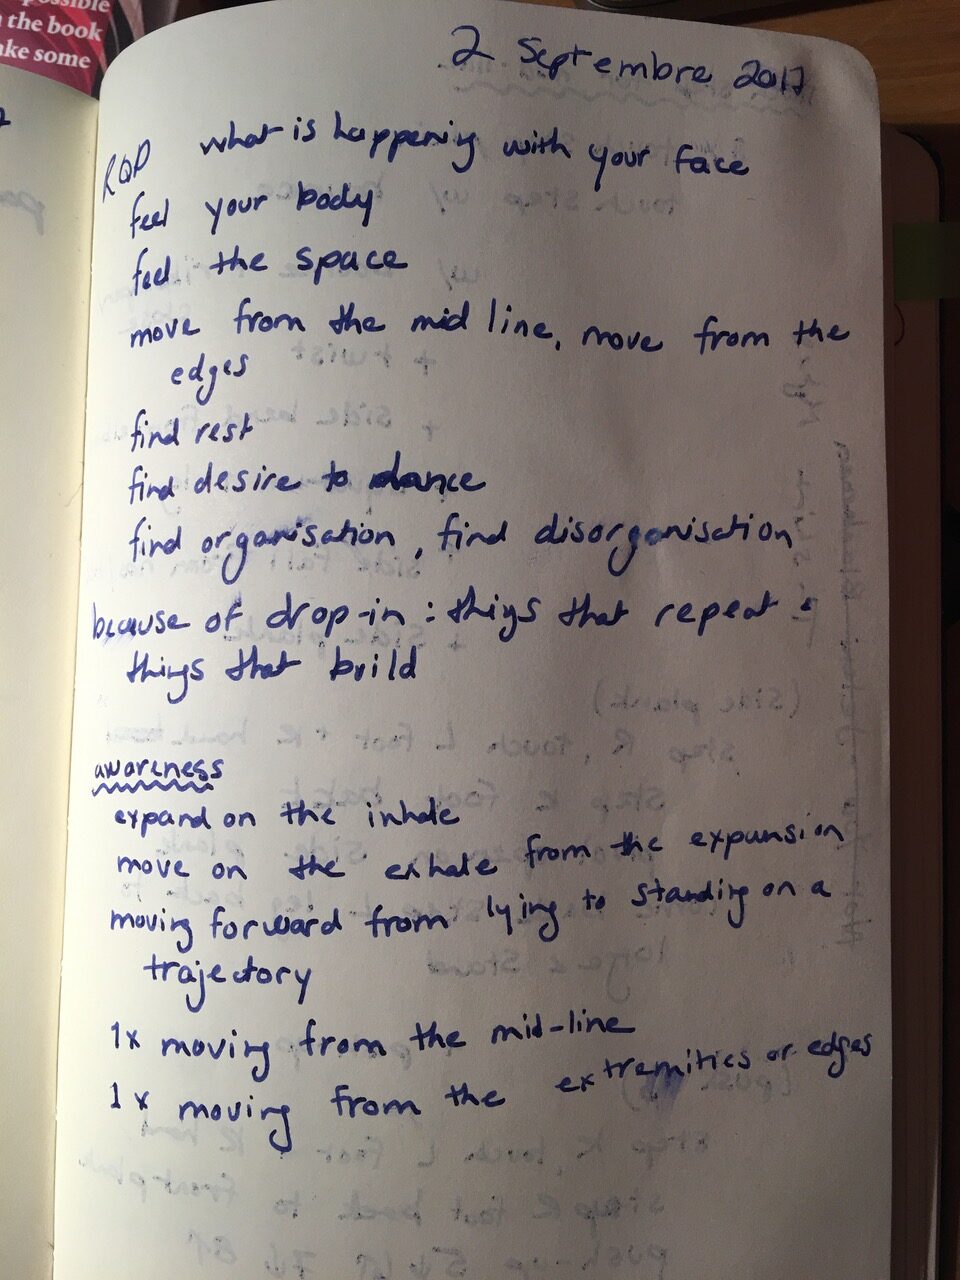 the book
ake some
2 Septembre 2017
RQD what is happening with your face
feel your body
feel the space
move from the mid line, move from the
edges
find rest
find desire to dance
find organisation, find disorganisation
because of drop-in: things that repeat &
things that build
awareness
expand on the inhale
move on the exhale from the expansion
moving forward from lying to standing on a
trajectory
1x moving from the mid-line
1x moving from the extremities or edges